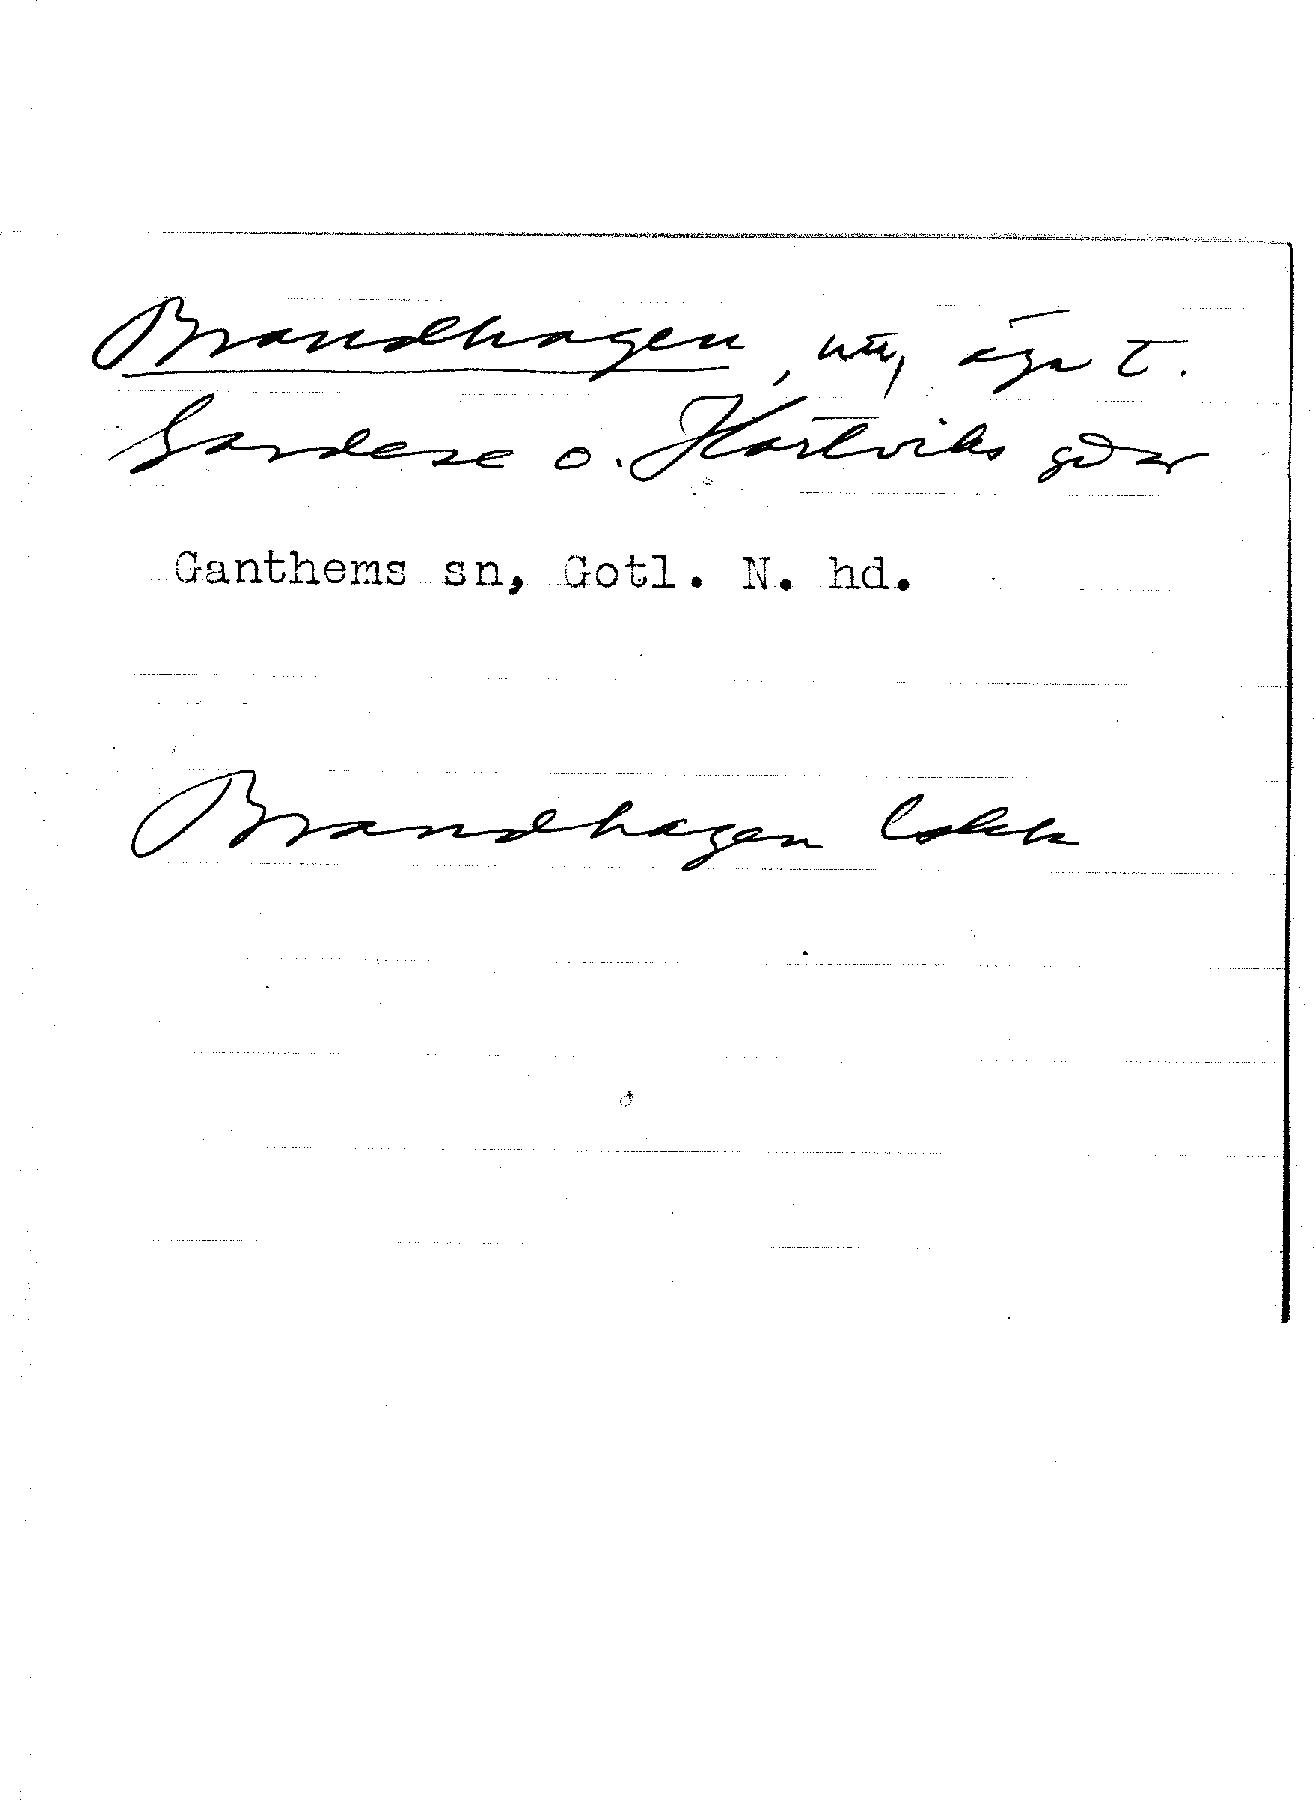 Brandhagen, nu, äga t.
Gardese o. Hartviks gdar
Ganthems sn, Gotl. N. hd.
Brandhagen